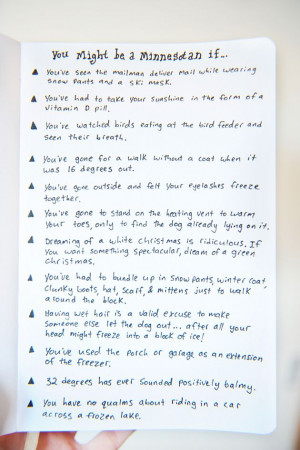 You Might be a Minnesotan if...
You've seen the mailman deliver mail while wearing
snow pants and a ski mask.
You've had to take your sunshine in the form of a
vitamin D pill.
You've watched birds eating at the bird feeder and
seen their breath.
You've gone for a walk without a coat when it
was 16 degrees out.
You've gone outside and felt your eyelashes freeze
together.
You've gone to stand on the heating vent to warm
your toes, only to find the dog already lying on it.
Dreaming of a white Christmas is ridiculous. If
you want something spectacular, dream of a green
Christmas.
You've had to bundle up in snow pants, winter coat,
clunky boots, hat, scarf, & mittens just to walk
around the block.
Having wet hair is a valid excuse to make
someone else let the dog out... after all your
head might freeze into a block of ice!
You've used the porch or garage as an extension
of the freezer.
32 degrees has ever sounded positively balmy.
You have no qualms about riding in a car
across a frozen lake.